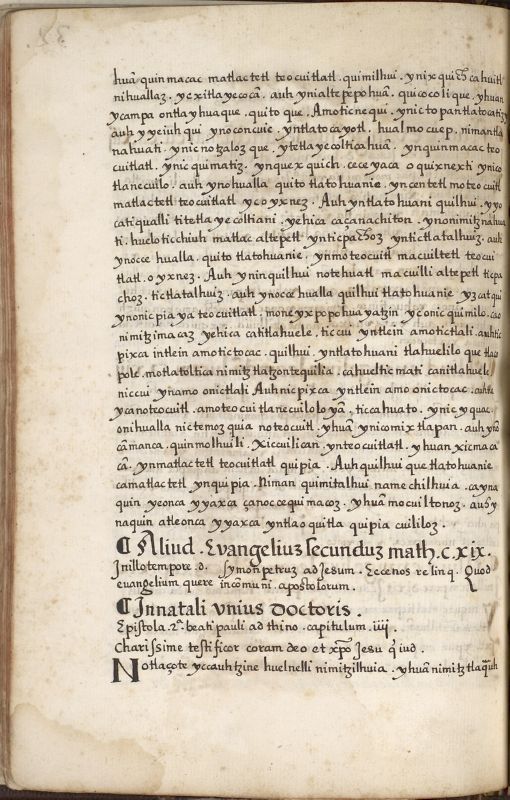 huā quin macac matlactetl teocuitlatl . quimilhui . ynixquich cahuitl
nihuallaz . ye xitlayecocā . auh ynialtepepohuā . quicocolique . yhuan
ycampa ontlayhuaque . quito que . Amo ticnequi . ynicto pan tlatocatiz
auh yyeiuhqui ynoconcuic . yntlatocayotl . hualmocuep . niman tla
nahuati . ynic notzaloz que . ytetlayecolticahuā . yn quinmacac teo
cuitlatl . ynic quimatiz . ynquexquich . cece yaca o quixnexti ynico
tlanecuilo . auh ynohualla quito tlatohuanie . yn centetl moteocuitl
matlactetl teocuitlatl yc oyxnez . Auh yntlatohuani quilhui . yyo
catiqualli titetlayecoltiani . yehica ca çanachiton . ynonimitznahua
ti . hueloticchiuh matlac altepetl ynticpachoz yntictlatalhuiz . auh
ynocce hualla . quito tlatohuanie . ynmoteocuitl macuiltetl teocui
tlatl . oyxnez . Auh yninquilhui notehuatl macuilli altepetl ticpa
choz . tictlatalhuiz . auh ynocce hualla quilhui tlatohuanie yzcatqui
ynonicpiaya teocuitlatl , moneyxpopohuayatzin yconicquimilo . cao
nimitzimacaz yehica catitlahuele . ticcui yntlein amotictlali . auhtic
pixca intlein amotictocac . quilhui . yntlatohuani tlahuelilo que tlaca
pole . motlatoltica nimitztlatzontequilia . cahuelticmati canitlahuele
niccui ynamo onictlali Auhnicpixca yntlein amo onictocac . auhtle
ycanoteocuitl . amoteocuitlanecuiloloyā , ticcahuato . ynicyquac .
onihualla nictemoz quia noteocuitl . yhuā ynicomixtlapan . auh ynō
cāmanca . quinmolhuili . Xiccuilican . ynteocuitlatl . yhuan xicmaca
cā . ynmatlactetl teocuitlatl quipia . Auh quilhui que tlatohuanie
camatlactetl ynquipia . Niman quimitalhui namechilhuia . cayna
quin yconca yyaxca çanocce quimacoz . yhuā mocuiltonoz . auh y
naquin atleonca yyaxca yntlaoquitla quipia cuililoz .
¶ Aliud . Evangeliuz secunduz math . c . xix .
In illo tempore . d . symon petruz ad Jesum . Ecce nos relinq . Quod
evangelium quere in comuni . apostolorum .
¶ In natali unius doctoris .
Epistola . 2ª . beati pauli ad thino . capitulum . iiij .
Charissime testificor coram deo et xpō Jesu q iud .
Notlaçote yccauhtzine huelnelli nimitzilhuia . yhuā nimitztlaquauh